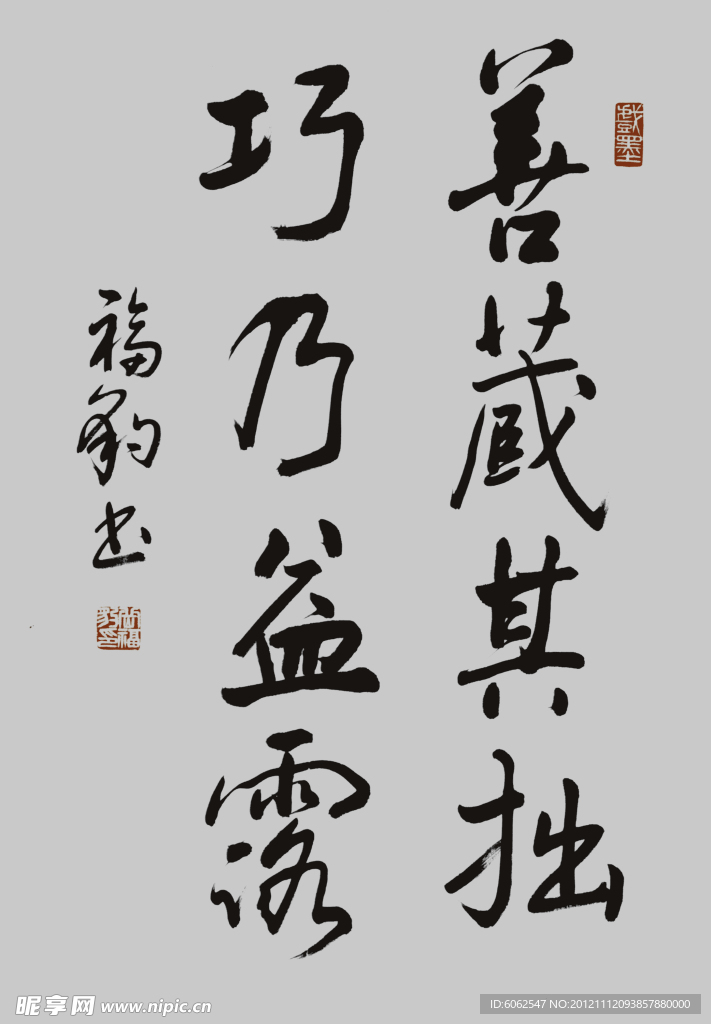 戲墨
善蔵其拙
巧乃益露
福豹书
尚福豹印
昵享网 www.nipic.cn
ID:6062547 NO:20121112093857880000